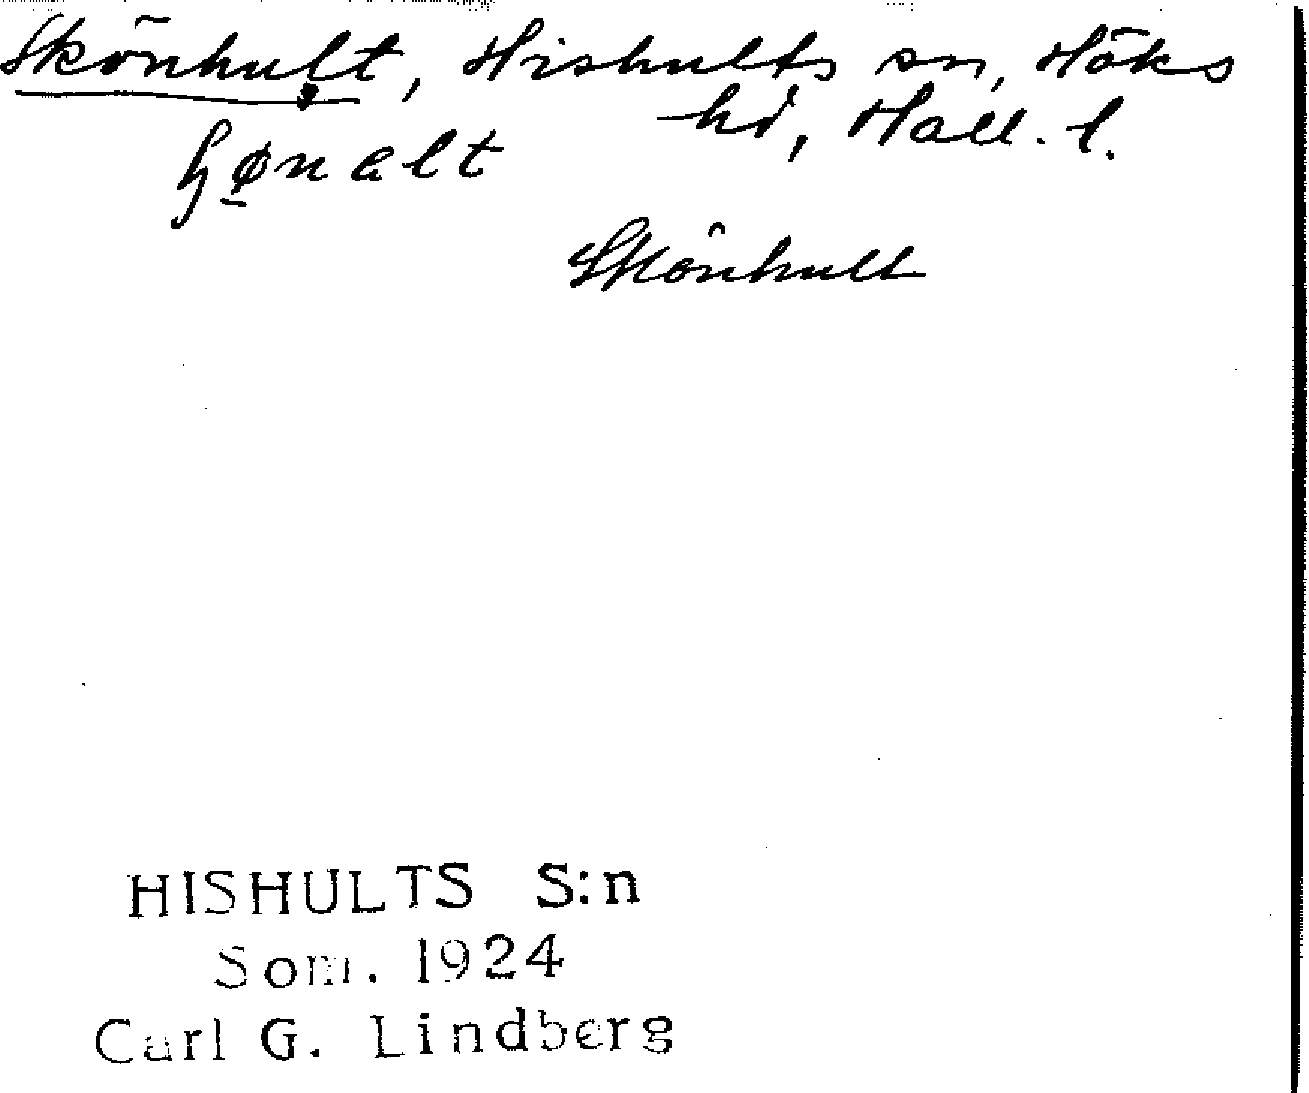 Skönhult, Hishults sn, Höks
hd, Hall. l.
ꞕø̲nalt
Skönhult
HISHULTS S:n
Som. 1924
Carl G. Lindberg